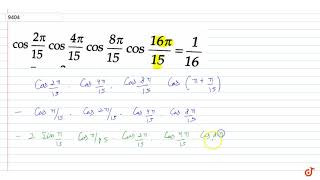 9404
cos 2π/15 cos 4π/15 cos 8π/15 cos 16π/15 = 1/16
Cos 2π/15 . Cos 4π/15 . Cos 8π/15 . Cos (π + π/15)
- Cos π/15 . Cos 2π/15 . Cos 4π/15 . Cos 8π/15
- 2 Sin π/15 Cos π/15 . Cos 2π/15 Cos 4π/15 Cos 8π